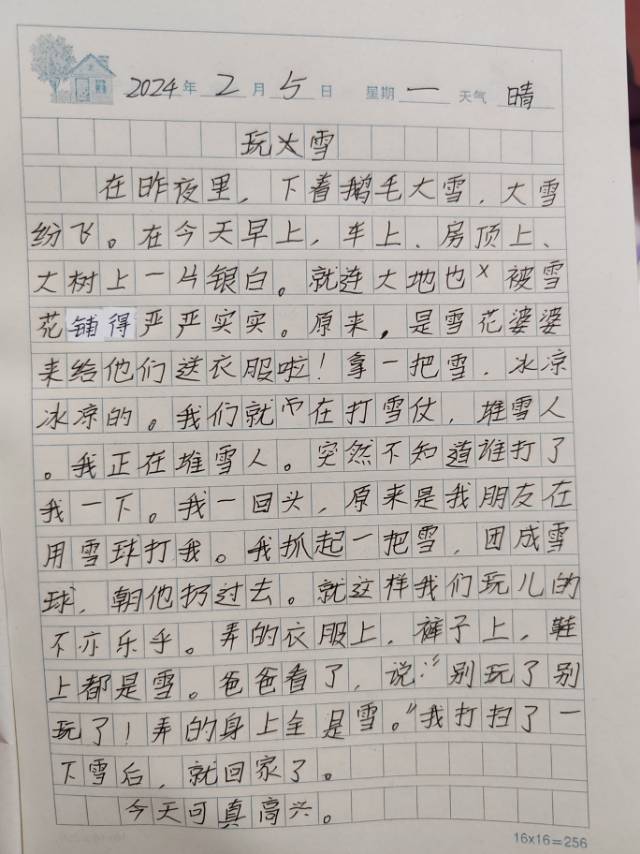 2024年2月5日 星期一 天气晴
玩大雪
在昨夜里，下着鹅毛大雪，大雪
纷飞。在今天早上，车上、房顶上、
大树上一片银白。就连大地也×被雪
花铺得严严实实。原来，是雪花婆婆
来给他们送衣服啦！拿一把雪，冰凉
冰凉的。我们就在打雪仗，堆雪人
。我正在堆雪人。突然不知道谁打了
我一下。我一回头，原来是我朋友在
用雪球打我。我抓起一把雪，团成雪
球，朝他扔过去。就这样我们玩儿的
不亦乐乎。弄的衣服上，裤子上，鞋
上都是雪。爸爸看了，说：“别玩了别
玩了！弄的身上全是雪。”我打扫了一
下雪后，就回家了。
今天可真高兴。
16x16=256